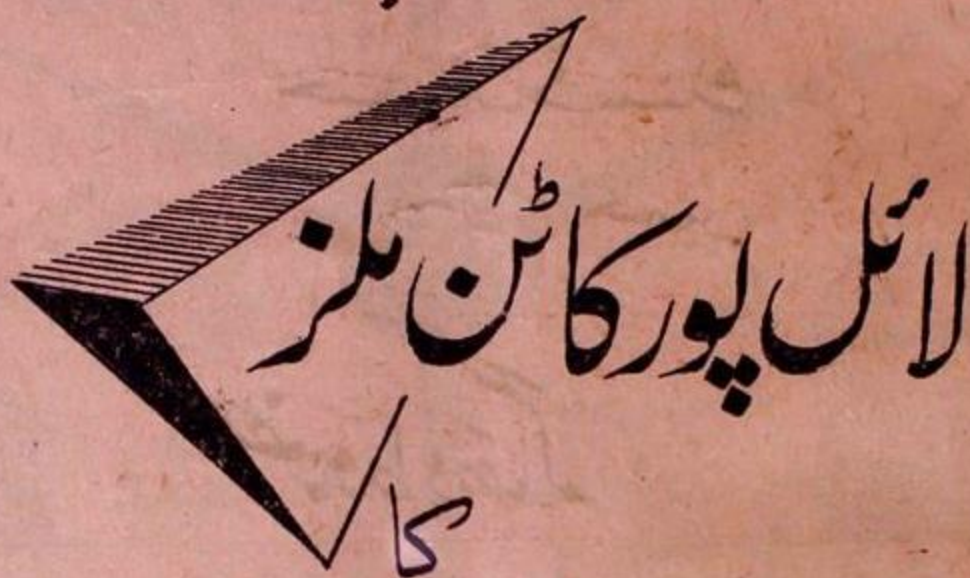 لائل پور کاٹن ملز
کا